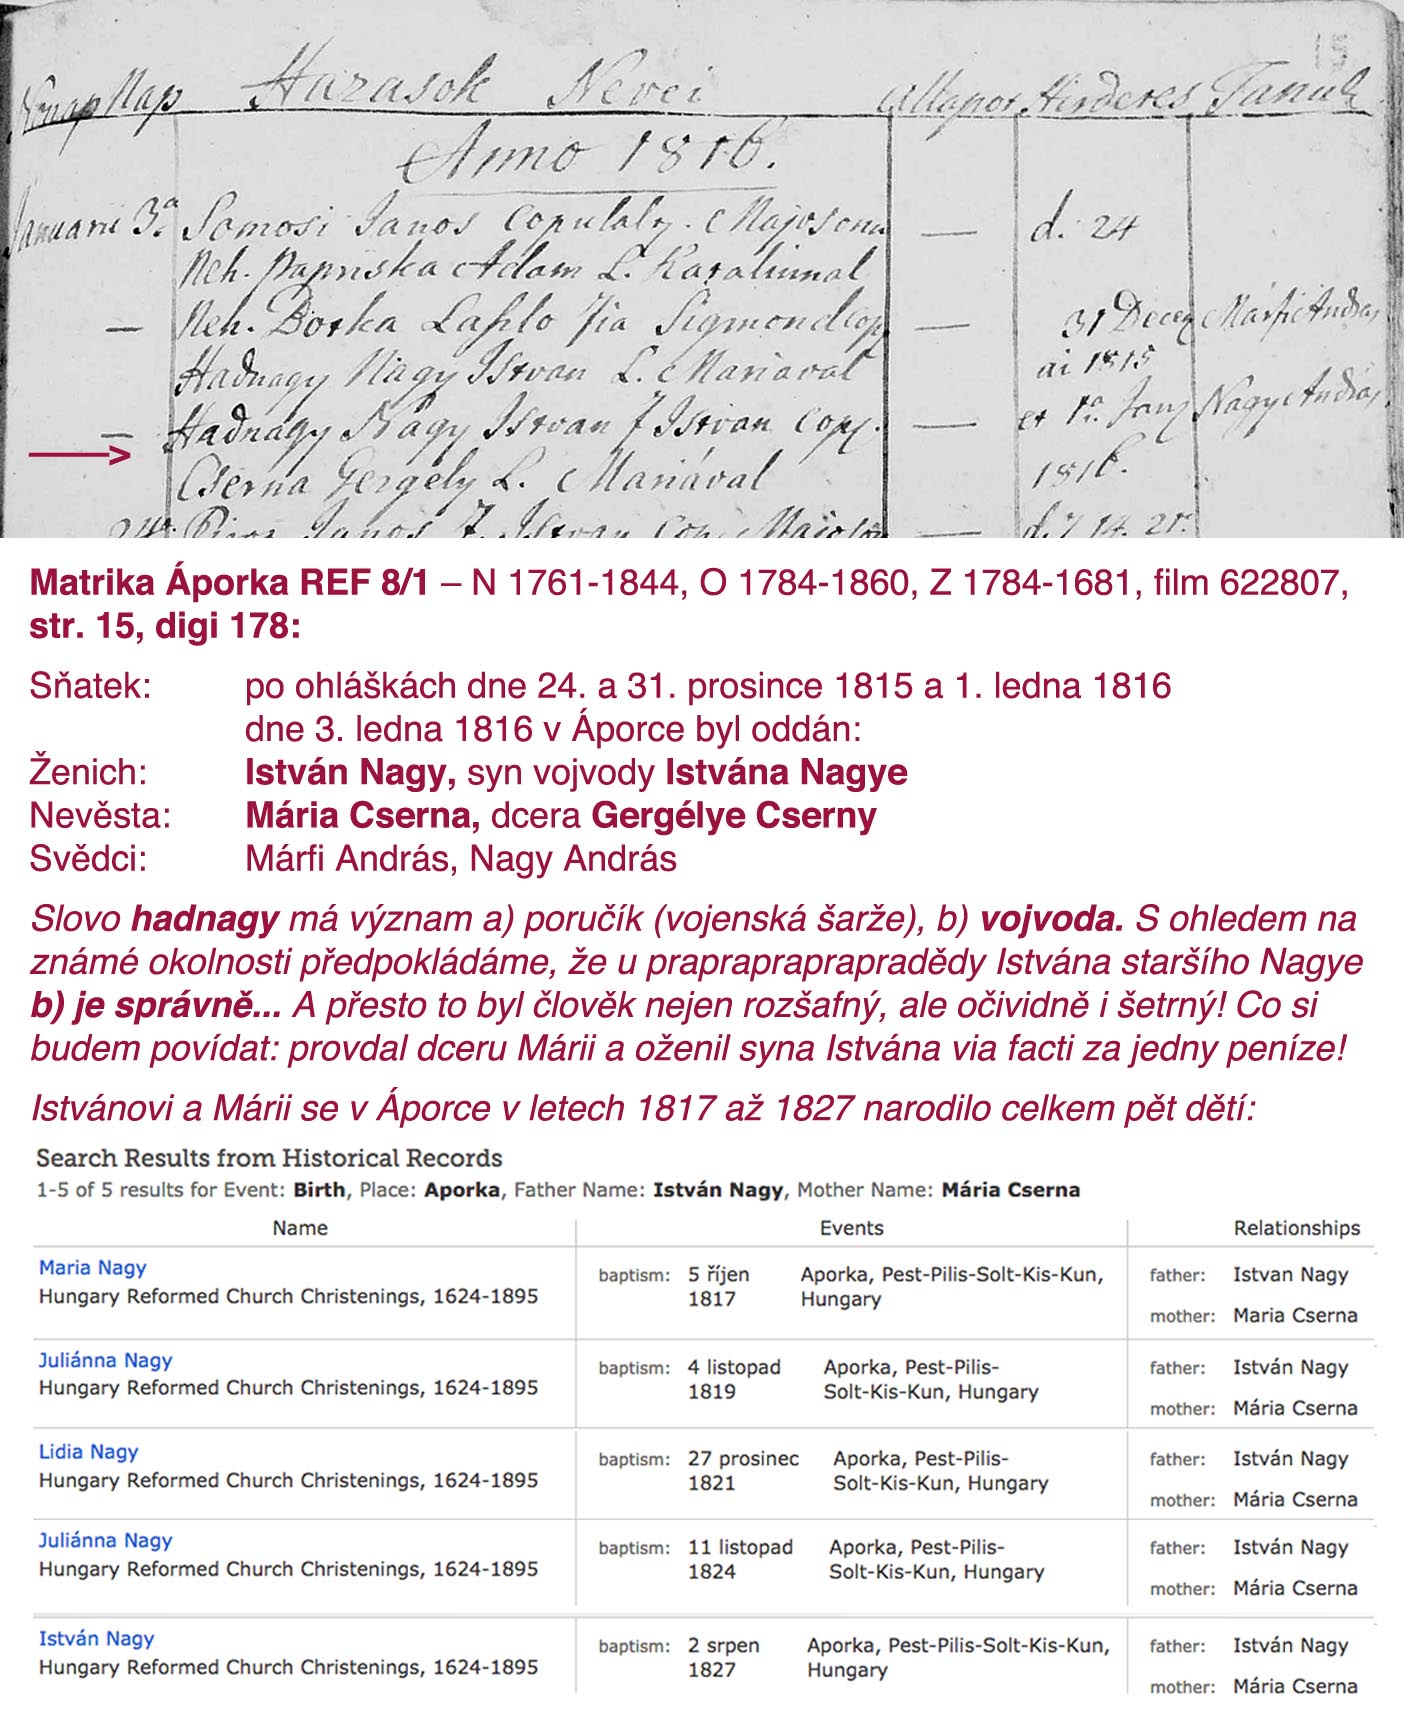 15
Nap Házasok Nevei Allapot Hirdetes Tanuk
Anno 1816.
Januarii 3a Somosi Janos copulalt. Majosona — d. 24
Neh. Papriska Adam L. Karalinnal
— Neh. Borka Laszlo fia Sigmond cop — 31 Decem Márfi András
Hadnagy Nagy Istvan L. Mariaval ai 1815
— Hadnagy Nagy Istvan f Istvan cop. — et 1a Jan Nagy András
Cserna Gergely L. Máriával 1816.
24 Janos f. Istvan — d. 7 14. 21.
Matrika Áporka REF 8/1 – N 1761-1844, O 1784-1860, Z 1784-1681, film 622807,
str. 15, digi 178:
Sňatek: po ohláškách dne 24. a 31. prosince 1815 a 1. ledna 1816
dne 3. ledna 1816 v Áporce byl oddán:
Ženich: István Nagy, syn vojvody Istvána Nagye
Nevěsta: Mária Cserna, dcera Gergélye Cserny
Svědci: Márfi András, Nagy András
Slovo hadnagy má význam a) poručík (vojenská šarže), b) vojvoda. S ohledem na
známé okolnosti předpokládáme, že u praprapraprapradědy Istvána staršího Nagye
b) je správně... A přesto to byl člověk nejen rozšafný, ale očividně i šetrný! Co si
budem povídat: provdal dceru Márii a oženil syna Istvána via facti za jedny peníze!
Istvánovi a Márii se v Áporce v letech 1817 až 1827 narodilo celkem pět dětí:
Search Results from Historical Records
1-5 of 5 results for Event: Birth, Place: Aporka, Father Name: István Nagy, Mother Name: Mária Cserna
Name Events Relationships
Maria Nagy baptism: 5 říjen Aporka, Pest-Pilis-Solt-Kis-Kun, father: Istvan Nagy
Hungary Reformed Church Christenings, 1624-1895 1817 Hungary mother: Maria Cserna
Juliánna Nagy baptism: 4 listopad Aporka, Pest-Pilis- father: István Nagy
Hungary Reformed Church Christenings, 1624-1895 1819 Solt-Kis-Kun, Hungary mother: Mária Cserna
Lidia Nagy baptism: 27 prosinec Aporka, Pest-Pilis- father: István Nagy
Hungary Reformed Church Christenings, 1624-1895 1821 Solt-Kis-Kun, Hungary mother: Mária Cserna
Juliánna Nagy baptism: 11 listopad Aporka, Pest-Pilis- father: István Nagy
Hungary Reformed Church Christenings, 1624-1895 1824 Solt-Kis-Kun, Hungary mother: Mária Cserna
István Nagy baptism: 2 srpen Aporka, Pest-Pilis-Solt-Kis-Kun, father: István Nagy
Hungary Reformed Church Christenings, 1624-1895 1827 Hungary mother: Mária Cserna